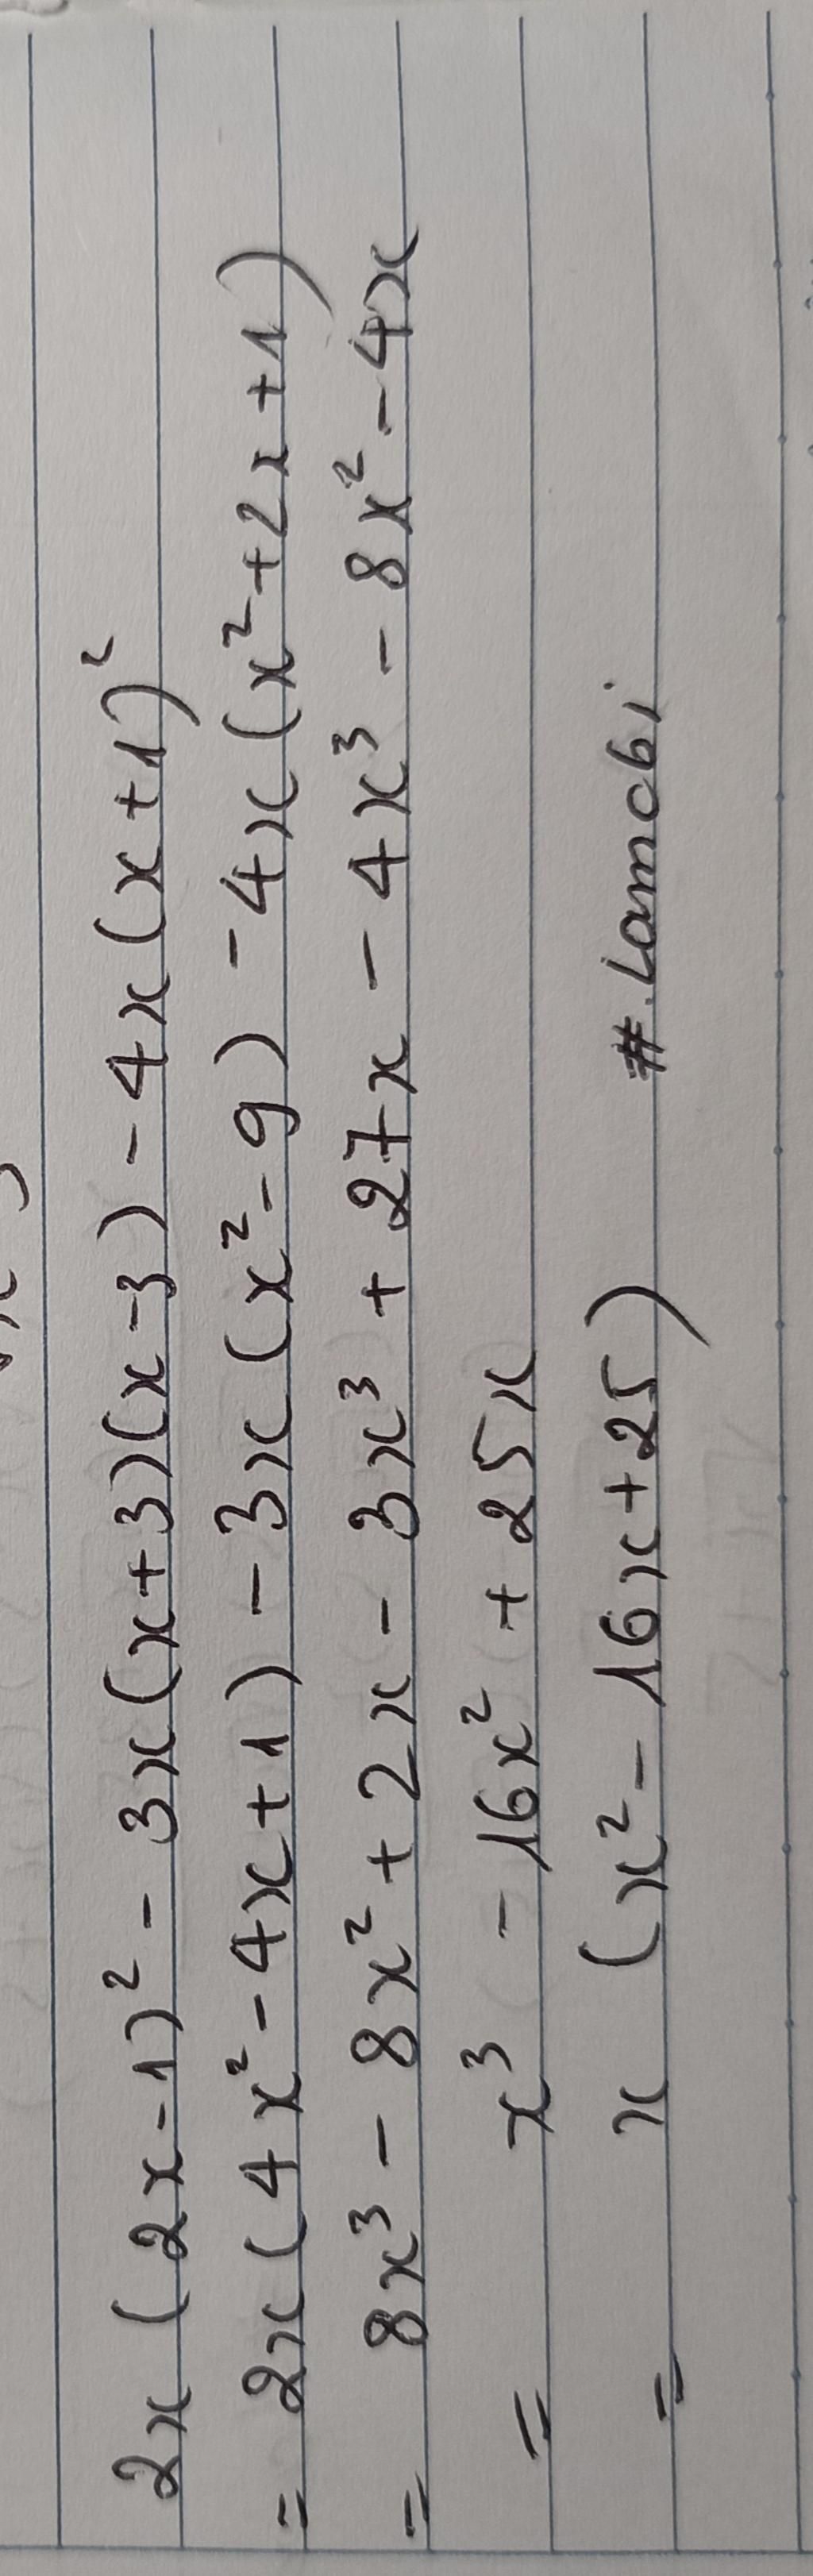 2x (2x-1)² - 3x(x+3)(x-3) - 4x(x+1)²
= 2x(4x²-4x+1) - 3x(x²-9) - 4x(x²+2x+1)
= 8x³ - 8x² + 2x - 3x³ + 27x - 4x³ - 8x² - 4x
= x³ - 16x² + 25x
= x (x² - 16x + 25) #.Lamcbi